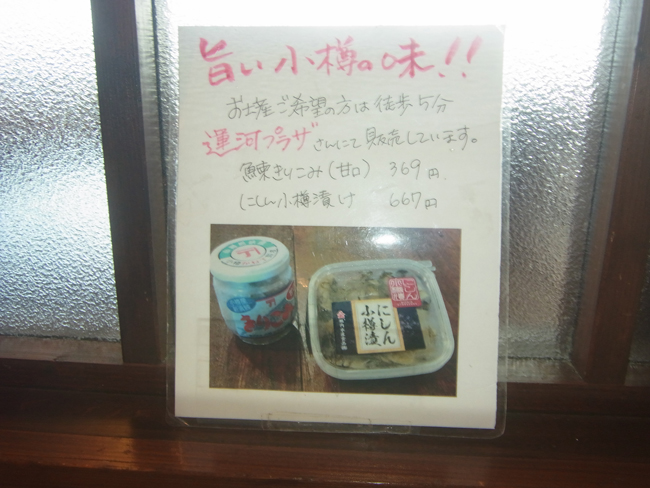 旨い小樽の味!!
お土産ご希望の方は徒歩5分
運河プラザさんにて販売しています。
鰊きりこみ(甘口) 369円
にしん小樽漬け 667円
にしん
小樽漬